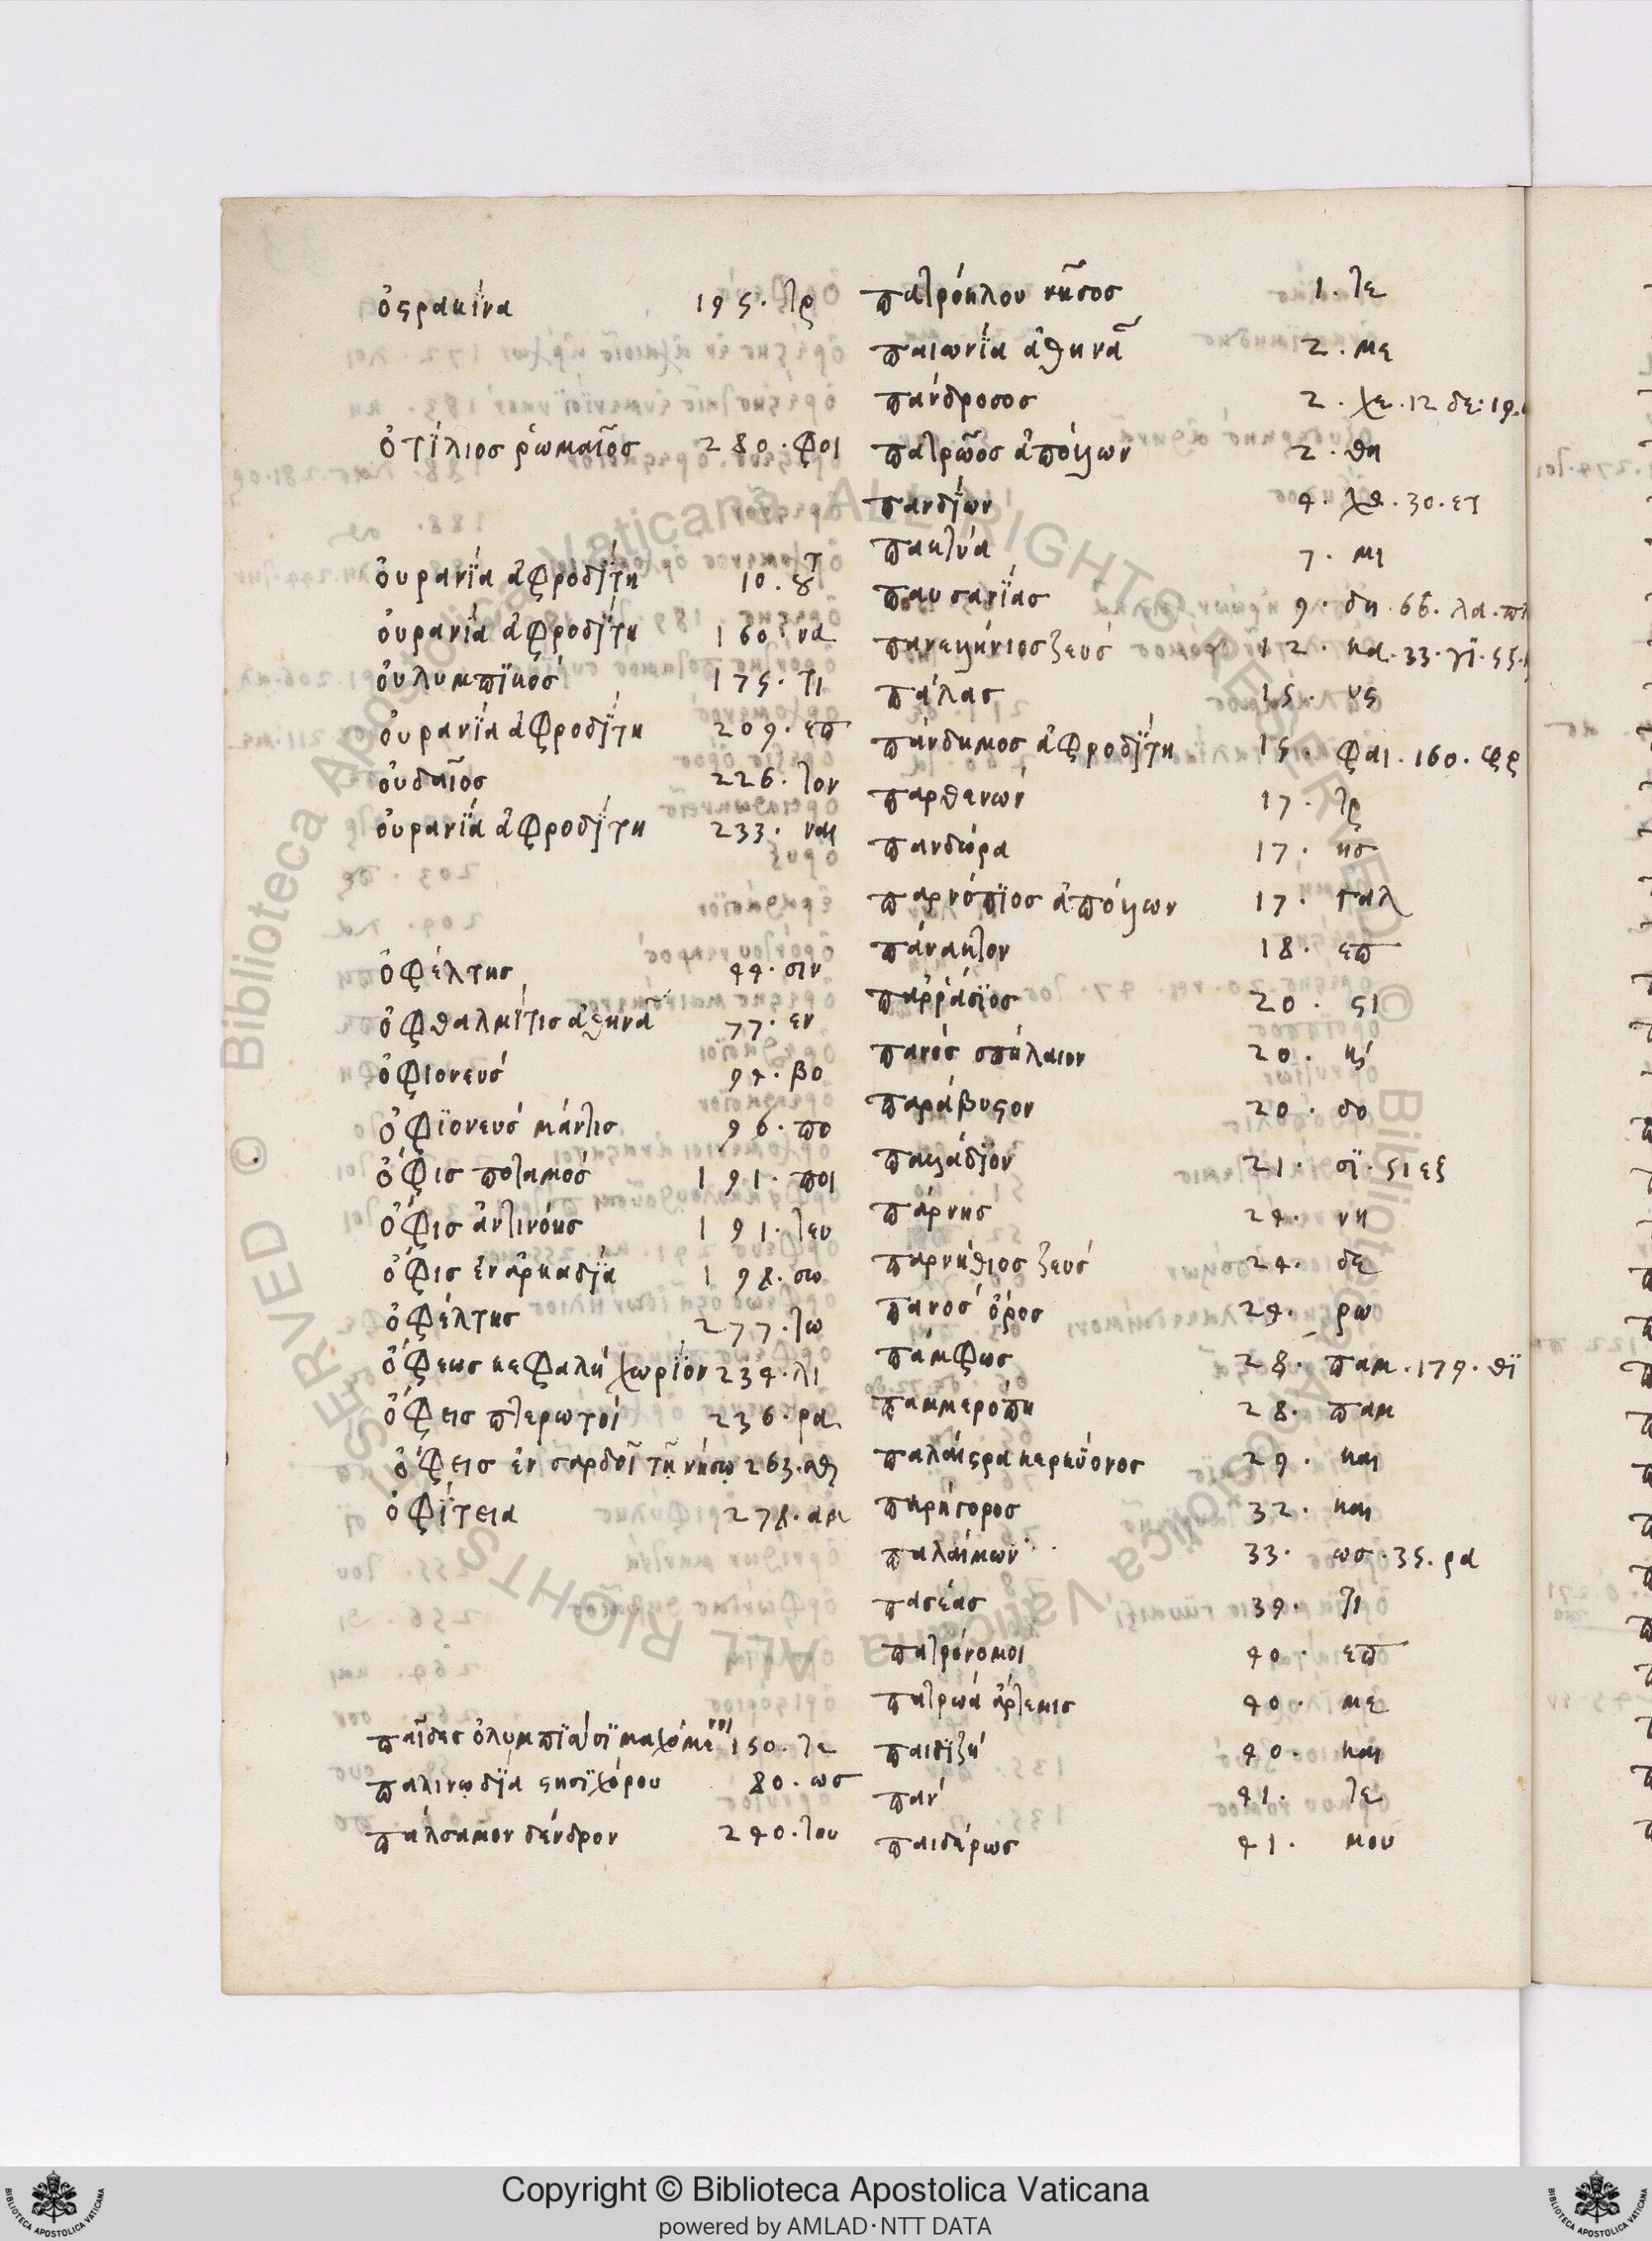 ὀστρακίνα 195. τρ
ὀτίλιος ῥωμαῖος 280. φοι
οὐρανία ἀφροδίτη 10.
οὐρανία ἀφροδίτη 160. να
οὐλυμπϊκός 175. τι
οὐρανία ἀφροδίτη 209. επ
οὐδαῖος 226. τον
οὐρανία ἀφροδίτη 233. και
ὀφέλτης 44. σιν
ὀφθαλμίτις ἀθηνᾶ 77. εν
ὀφιονεύς 94. βο
ὀφϊονεύς μάντις 96. πο
ὄφις ποταμός 191. ποι
ὄφις ἀντινόης 191. τευ
ὄφις ἐν ἀρκαδία 198. σω
ὀφέλτης 277. τω
ὄφεως κεφαλή χωρίον 234. λι
ὄφεις πτερωτοί 236. ρα
ὄφεις ἐν σαρδοῖ τῇ νήσῳ 263. αθ
ὀφίτεια 278. αμ
παῖδες ὀλυμπϊάσϊ μαχόμενοι 150. τε
παλινῳδία στησϊχόρου 80. ωσ
πάλσαμον δένδρον 240. του
πατρόκλου νῆσος 1. τε
παιωνία ἀθηνᾶ 2. με
πάνδροσος 2. χε. 12 δε: 19.
πατρῶος ἀπόλλων 2. θη
πανδίων 4. 30. ετ
πακτύα 7. μι
παυσανίας 9. δη. 66. λα. πλ
πανελλήνιος ζεύς 12. κα. 33. γϊ. 55.
πάλας 15. υς
πάνδημος ἀφροδίτη 15. φαι. 160. φρ
παρθενών 17. τρ
πανδώρα 17. ησ
παρνόπϊος ἀπόλλων 17. παλ
πάνακτον 18. επ
παῤῥάσϊος 20. στι
πανός σπήλαιον 20. κς
παράβυστον 20. δο
παλλάδϊον 21. σϊ. στι εξ
πάρνης 24. νη
παρνήθιος ζεύς 24. δε
πανός ὄρος 24. ρω
πάμφως 28. παμ. 179. θϊ
παμμερόπη 28. παμ
παλαίστρα κερκύονος 29. και
παρήγορος 32. και
παλαίμων 33. ωσ. 35. ρα
πασέας 39. τι
πατρόνομοι 40. επ
πατρώα ἄρτεμις 40. με
παιδϊζή 40. και
πάν 41. τε
παιδέρως 41. μου
Copyright © Biblioteca Apostolica Vaticana
powered by AMLAD·NTT DATA